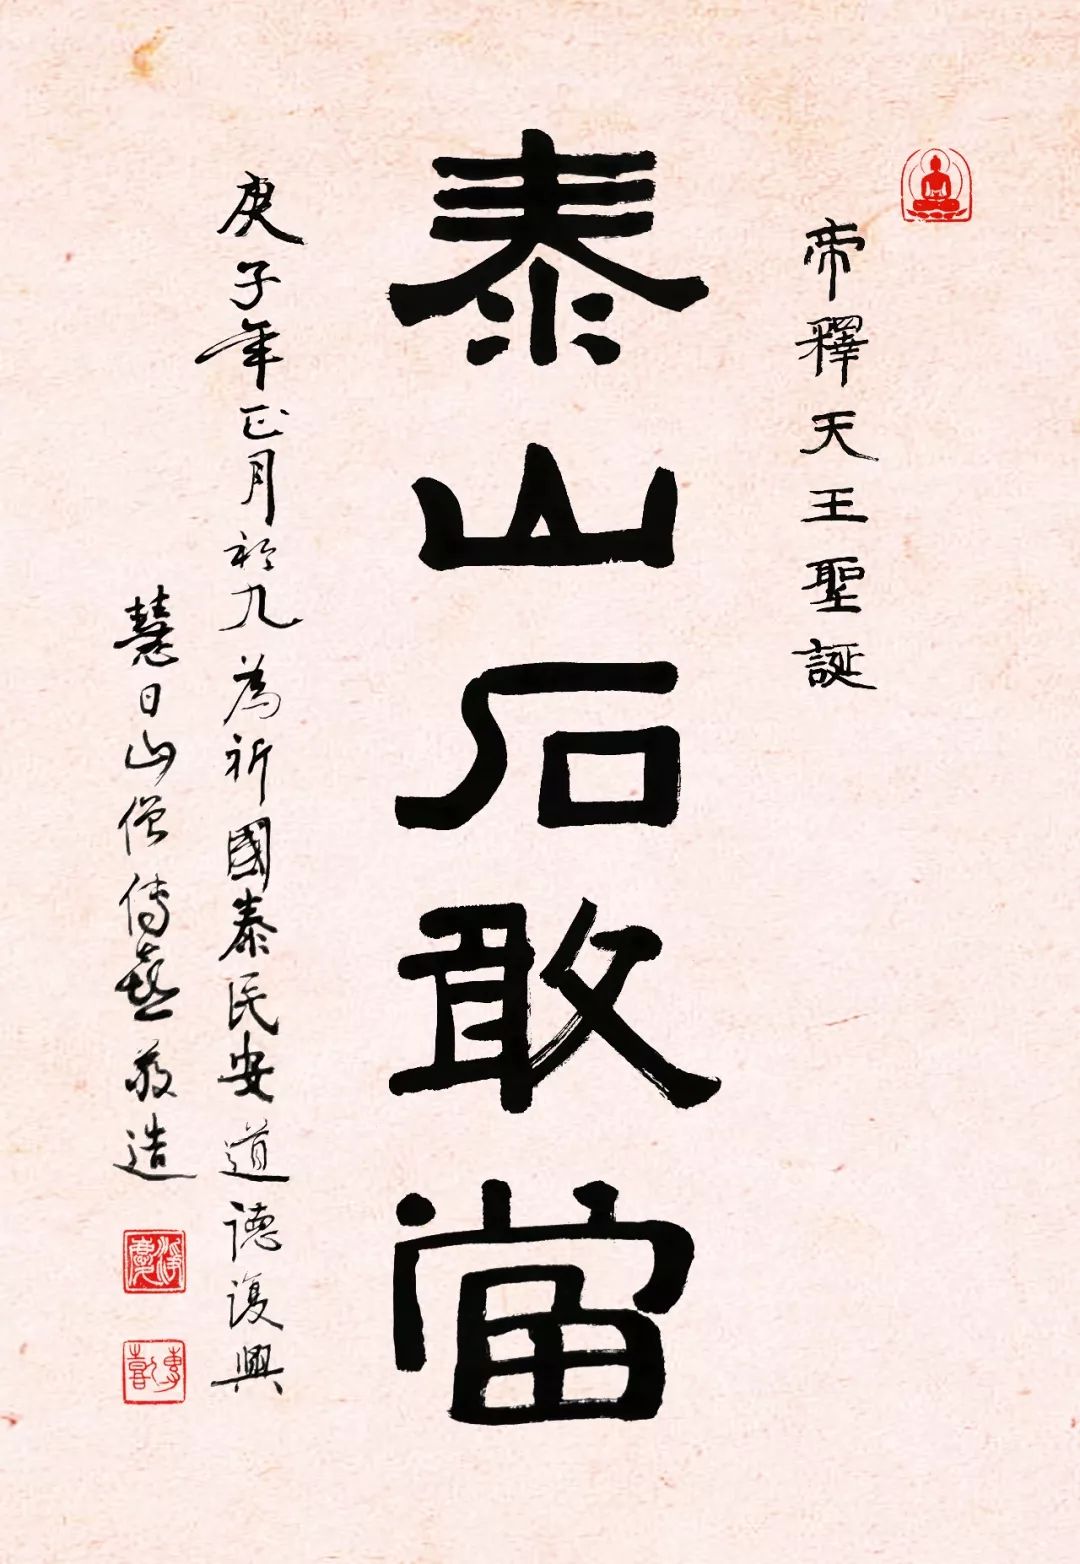 帝釋天王聖誕
泰山石敢當
庚子年正月初九為祈國泰民安道德復興
慧日山僧傳喜敬造
傳喜